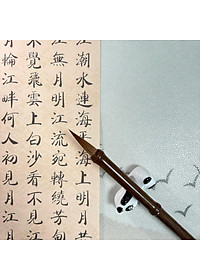 江潮水連海平海上明月
江無月明江流宛轉繞芳甸
不覺飛上白沙看不見江
月輪江畔何人初見月江月